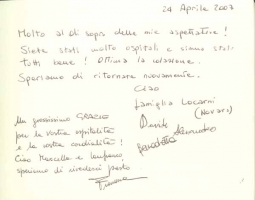 24 Aprile 2007
Molto al di sopra delle mie aspettative!
Siete stati molto ospitali e siamo stati
tutti bene! Ottima la colazione.
Speriamo di ritornare nuovamente.
Ciao
famiglia Locarni
(Novara)
Davide
Un grossissimo GRAZIE
per la vostra ospitalità
e la vostra cordialità!
Ciao Marcella e
speriamo di rivederci presto!